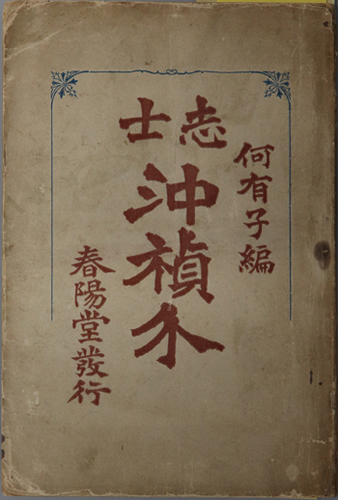 何有子編
志士
沖禎介
春陽堂發行